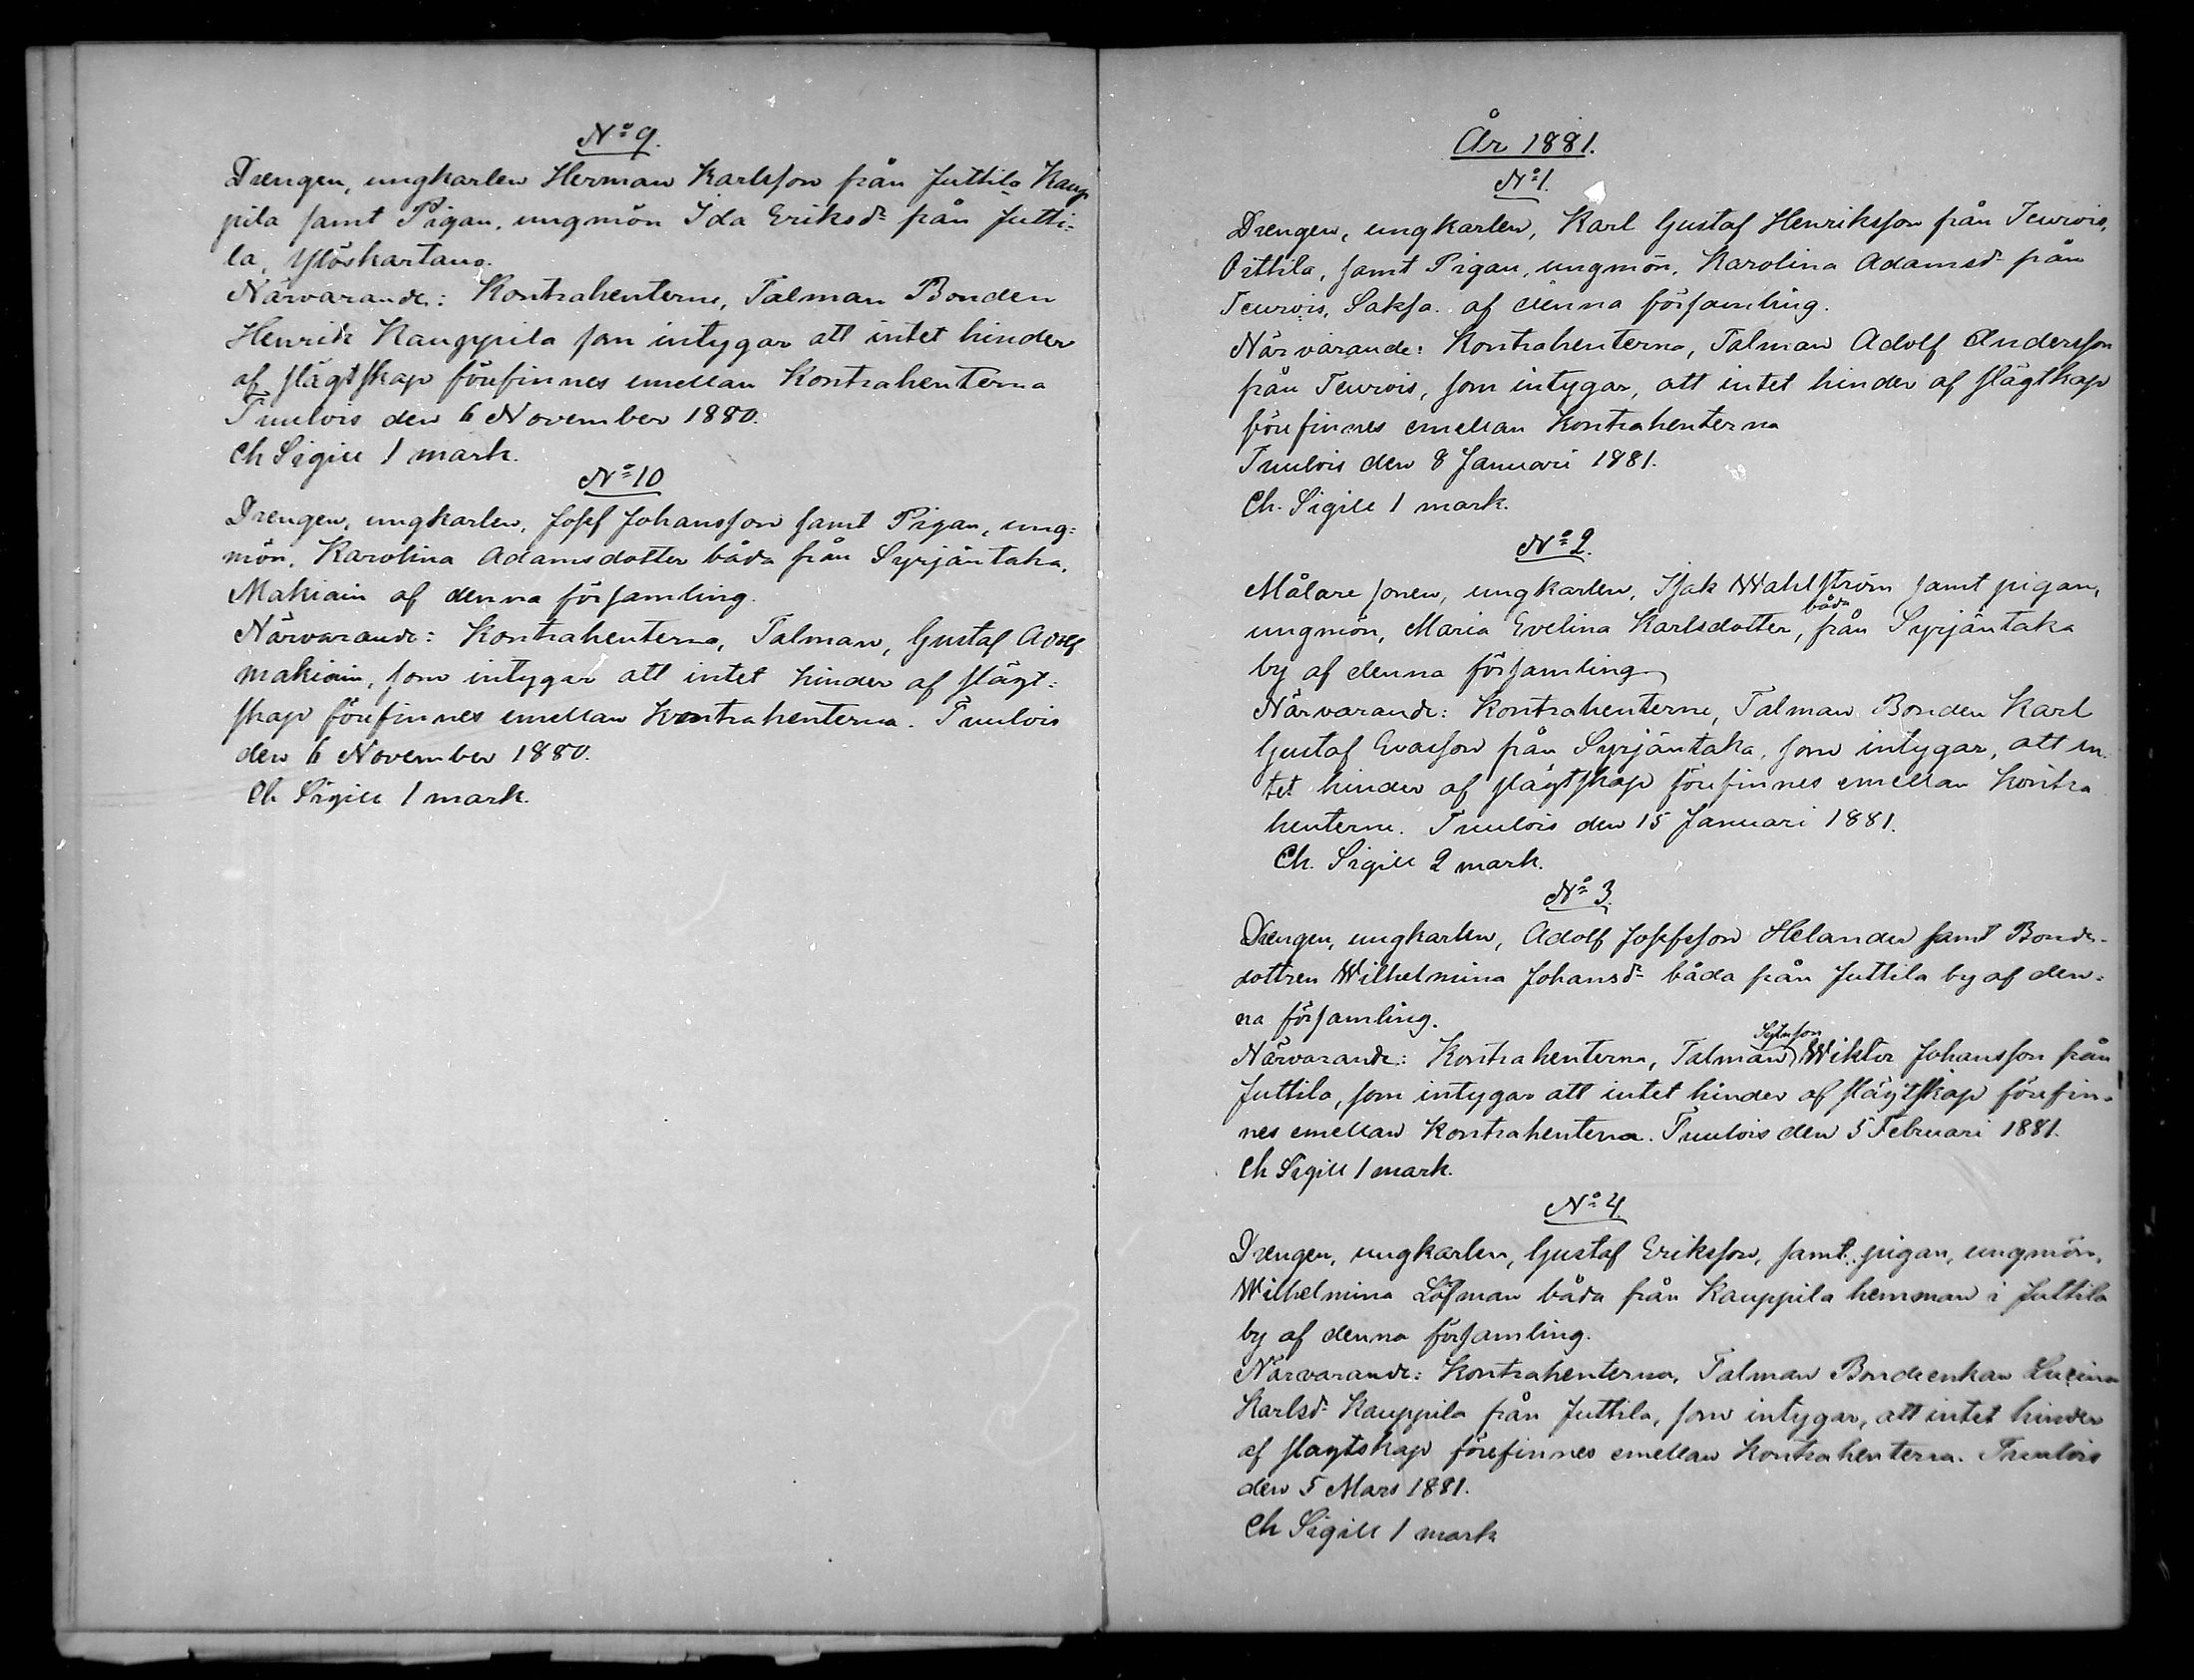 No 9.
Drengen, ungkarlen Herman Karlsson från Juttila Kaup
pila samt Pigan, ungmön Ida Eriksdr från Jutti-
la, Ylöskartano.
Närvarande: Kontrahenterne, Talman Bonden
Henrik Kauppila som intygar att intet hinder
af slägtskap förefinnes emellan Kontrahenterna
Tuulois den 6 November 1880.
Ch Sigill 1 mark.
No 10
Drengen, ungkarlen, Josef Johansson samt Pigan, ung-
mön, Karolina Adamsdotter båda från Syrjäntaka,
Makiain af denna församling.
Närvarande: Kontrahenterna, Talman, Gustaf Adolf
Makiain, som intygar att intet hinder af slägt-
skap förefinnes emellan Kontrahenterna. Tuulois
den 6 November 1880.
Ch Sigill 1 mark.
År 1881.
No 1.
Drengen, ungkarlen, Karl Gustaf Henriksson från Teurois,
Ottila, samt Pigan, ungmön, Karolina Adamsdr från
Teurois, Saksa af denna församling.
Närvarande: Kontrahenterna, Talman Adolf Andersson
från Teurois, som intygar, att intet hinder af slägtkap
förefinnes emellan Kontrahenterna
Tuulois den 8 Januari 1881.
Ch. Sigill 1 mark.
No 2.
Målare sonen, ungkarlen, Isak Wahlström samt pigan,
ungmön, Maria Evelina Karlsdotter, båda från Syrjäntaka
by af denna församling
Närvarande: Kontrahenterne, Talman Bonden Karl
Gustaf Evasson från Syrjäntaka, som intygar, att in-
tet hinder af slägtskap förefinnes emellan Kontra
henterne. Tuulois den 15 Januari 1881.
Ch. Sigill 2 mark.
No 3.
Drengen, ungkarlen, Adolf Josefsson Helander samt Bonde-
dottren Wilhelmina Johansdr båda från Juttila by af den-
na församling.
Närvarande: Kontrahenterna, Talman Wiktor Johansson från
Juttila, som intygar att intet hinder af slägtskap förefin-
nes emellan Kontrahenterna. Tuulois den 5 Februari 1881.
Ch Sigill 1 mark.
No 4.
Drengen, ungkarlen, Gustaf Eriksson, samt pigan, ungmön,
Wilhelmina Löfman båda från Kauppila hemman i Juttila
by af denna församling.
Närvarande: Kontrahenterna, Talman Bondeenkan Lucina
Karlsdr Kauppila från Juttila, som intygar, att intet hinder
af slagtskap förefinnes emellan Kontrahenterna. Tuulois
den 5 Mars 1881.
Ch Sigill 1 mark